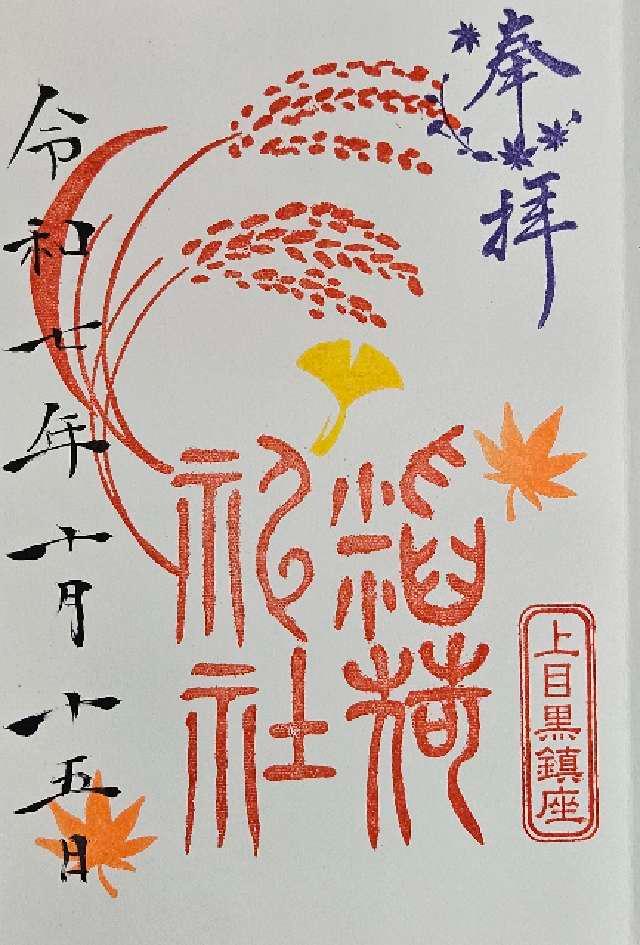 奉拝
稲荷
祀社
上目黒鎮座
令和七年十月十五日